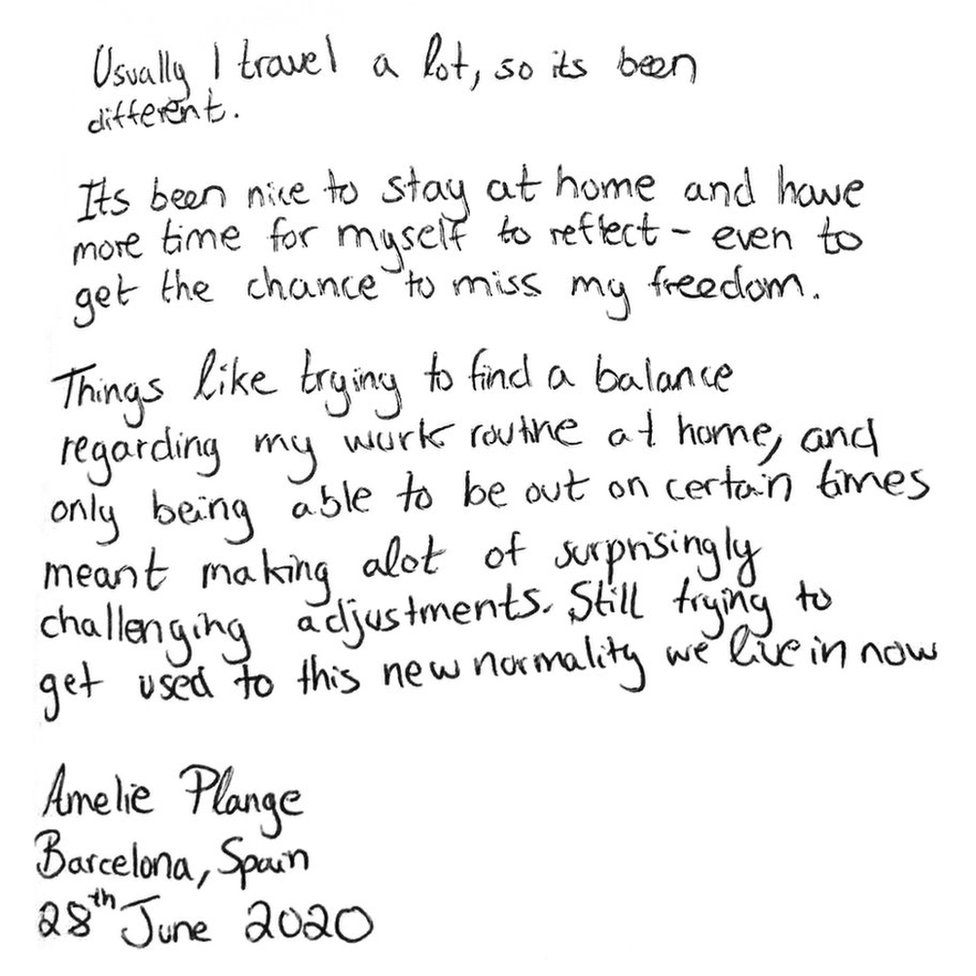 Usually I travel a lot, so its been
different.
Its been nice to stay at home and have
more time for myself to reflect - even to
get the chance to miss my freedom.
Things like trying to find a balance
regarding my work routine at home, and
only being able to be out on certain times
meant making alot of surprisingly
challenging adjustments. Still trying to
get used to this new normality we live in now
Amelie Plange
Barcelona, Spain
28th June 2020